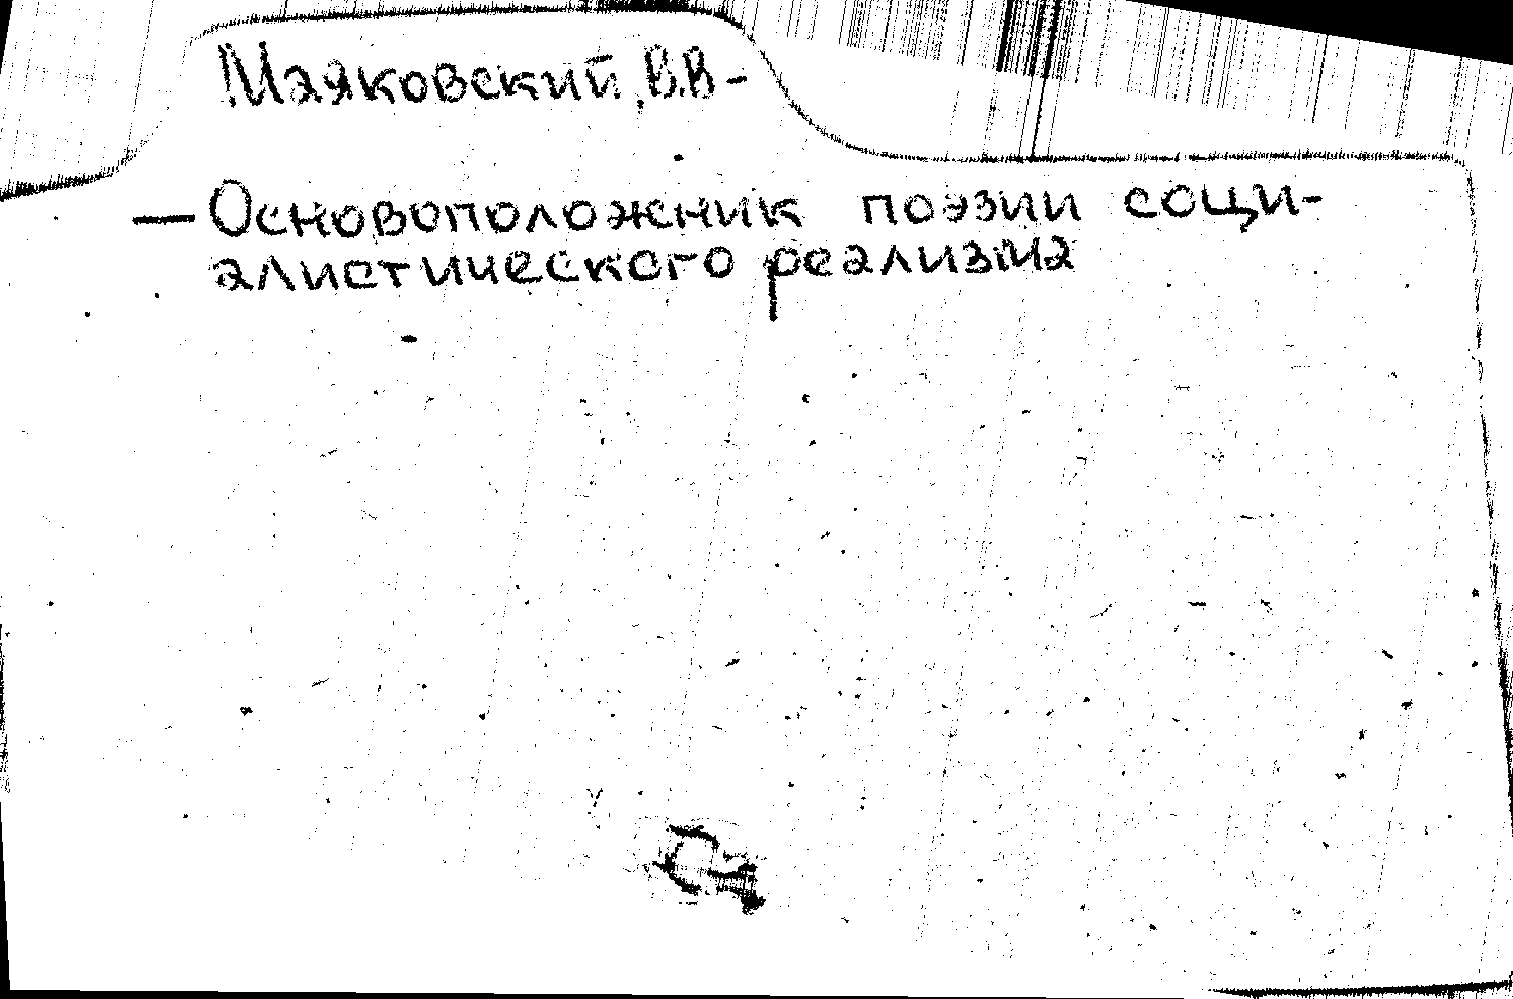 Маяковский, В.В -
— Основоположник поэзии соци-
алистического реализма